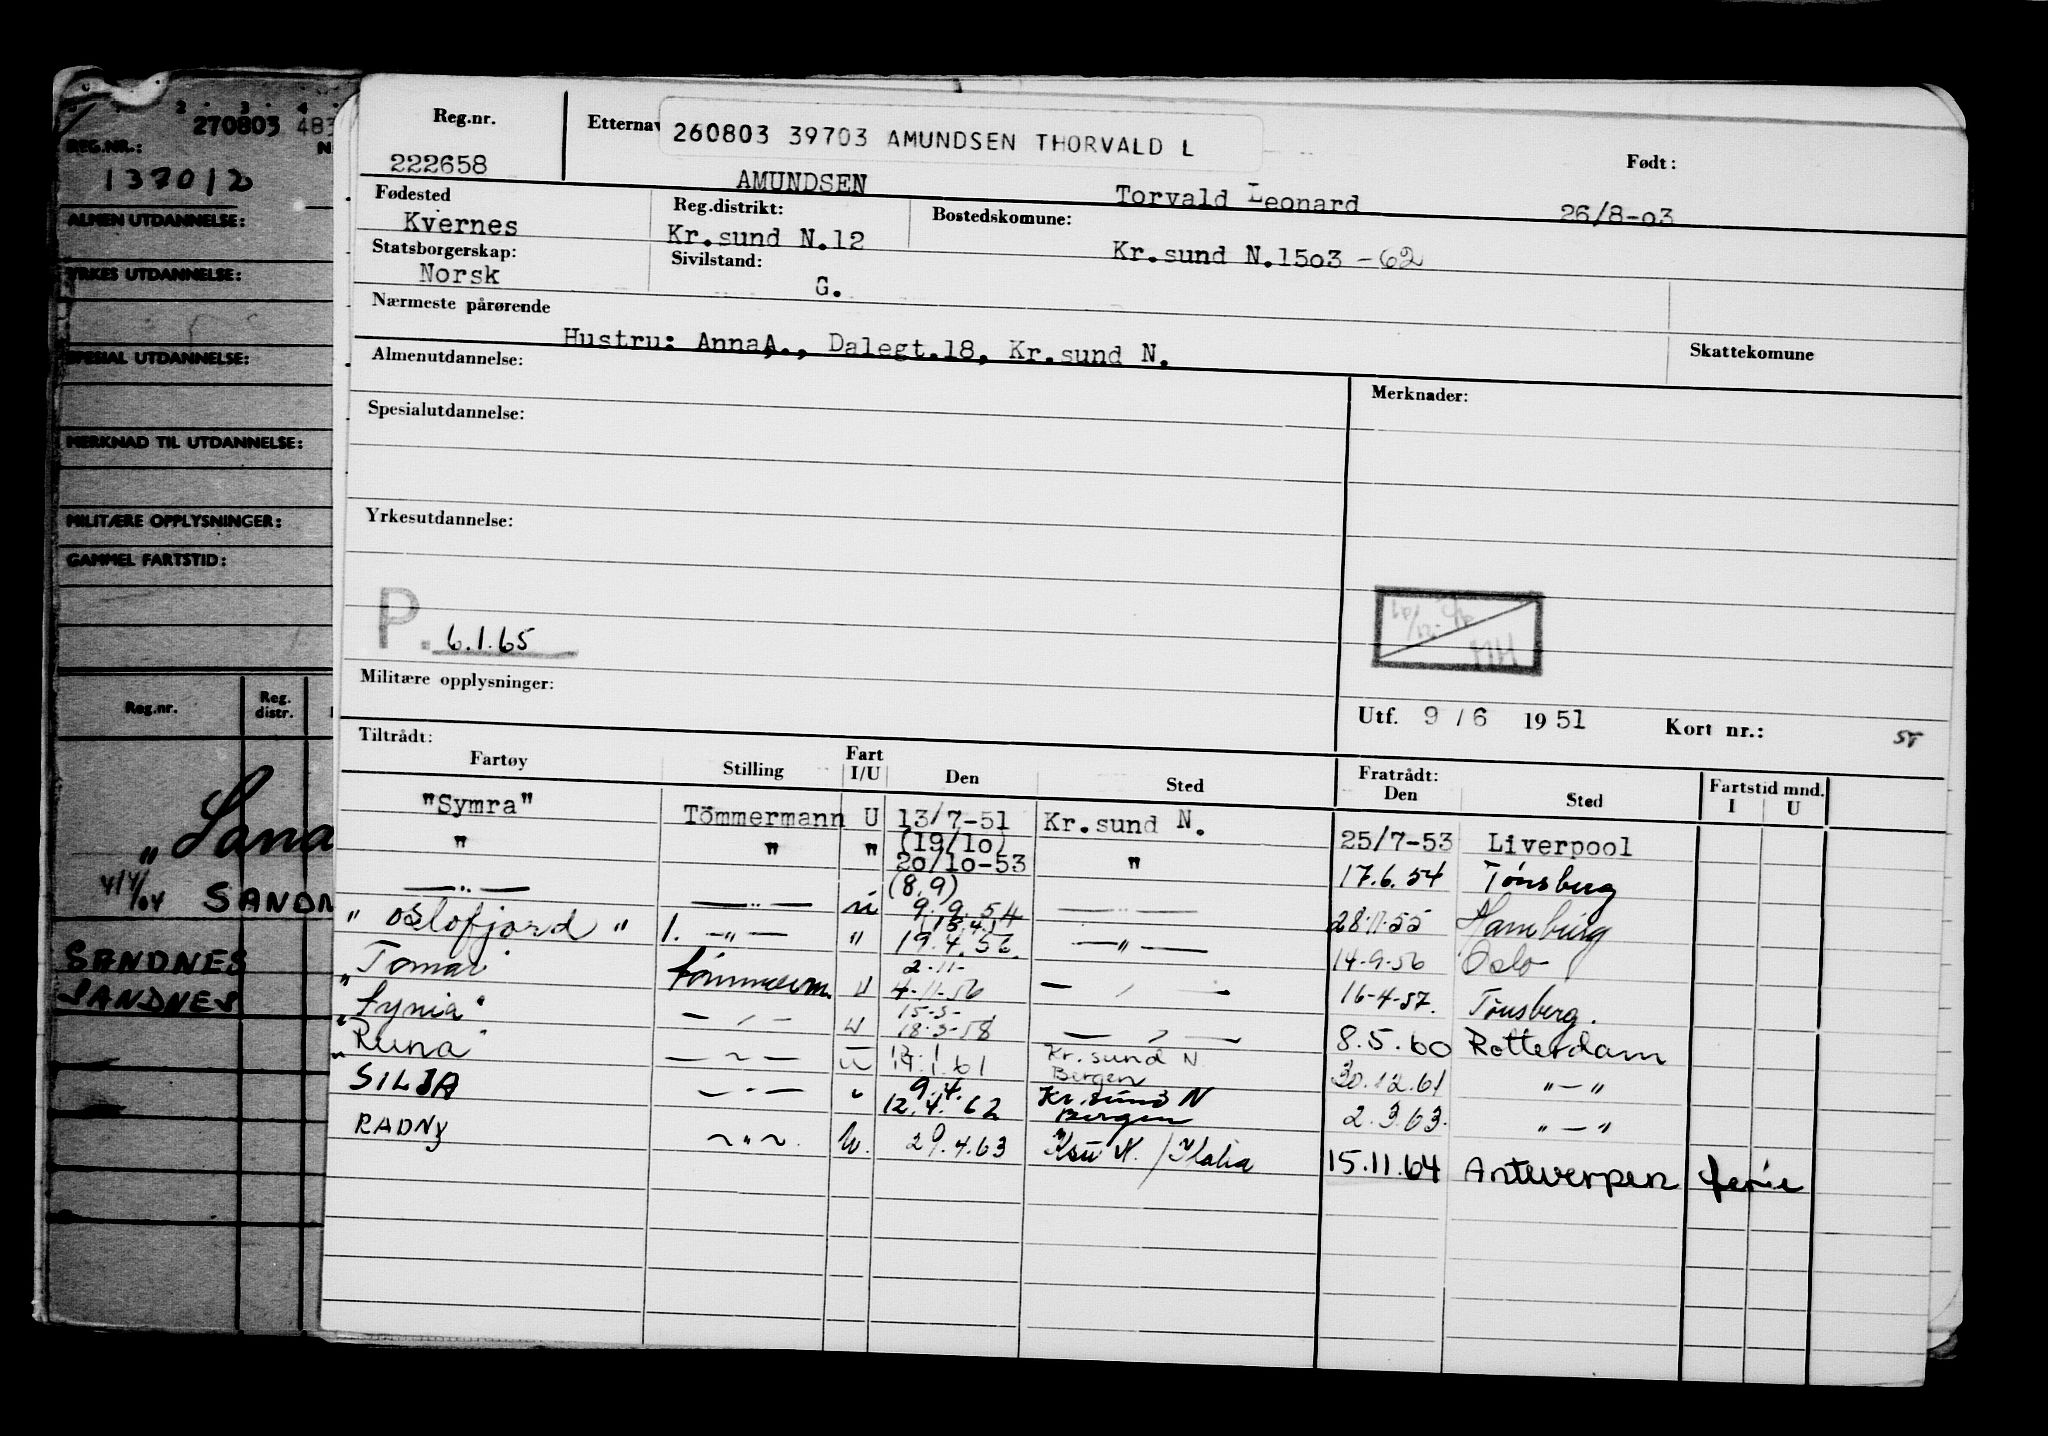 2 . 3 . 4 .
270803 483
REG.NR.: N
137012
ALMEN UTDANNELSE:
YRKES UTDANNELSE:
SPESIAL UTDANNELSE:
MERKNAD TIL UTDANNELSE:
MILITÆRE OPPLYSNINGER:
GAMMEL FARTSTID:
Reg.nr. Reg. distr.
SANDN
SANDNES
SANDNES
Reg.nr. Etternav 260803 39703 AMUNDSEN THORVALD L Født:
222658 AMUNDSEN Torvald Leonard 26/8-03
Fødested Reg.distrikt: Bostedskomune:
Kvernes Kr.sund N.12 Kr.sund N.1503 -62
Statsborgerskap: Sivilstand:
Norsk G.
Nærmeste pårørende
Hustru: Anna A., Dalegt.18, Kr.sund N. Skattekomune
Almenutdannelse: Merknader:
Spesialutdannelse:
Yrkesutdannelse:
P. 6.1.65
Militære opplysninger:
Utf. 9 / 6 1951 Kort nr.:
Tiltrådt: Fratrådt:
Fartøy Stilling Fart I/U Den Sted Den Sted Fartstid mnd. I U
"Symra" Tömmermann U 13/7-51 Kr.sund N. 25/7-53 Liverpool
" " " (19/10) 20/10-53 " 17.6.54 Tönsberg
—"— —"— u (8.9) 9.9.54 —"— 28.11.55 Hamburg
"Oslofjord" 1. —"— " 19.4.56. —"— 14-9-56 Oslo
"Tomar" tömmerm. U 2-11- 4-11-56 — " — 16-4-57. Tönsberg.
"Lynia" — " — U 15-3- 18-3-58 — " — 8.5.60 Rotterdam
"Runa" — " — u 1.61 Kr.sund N Bergen 30.12.61 "—"
SILJA — " — " 9.4. 12.4.62 Kr.sund N Bergen 2.3.63. "—"
RADNY — " — U. 29.4.63 Ksu N. / Italia 15.11.64 Antwerpen ferie